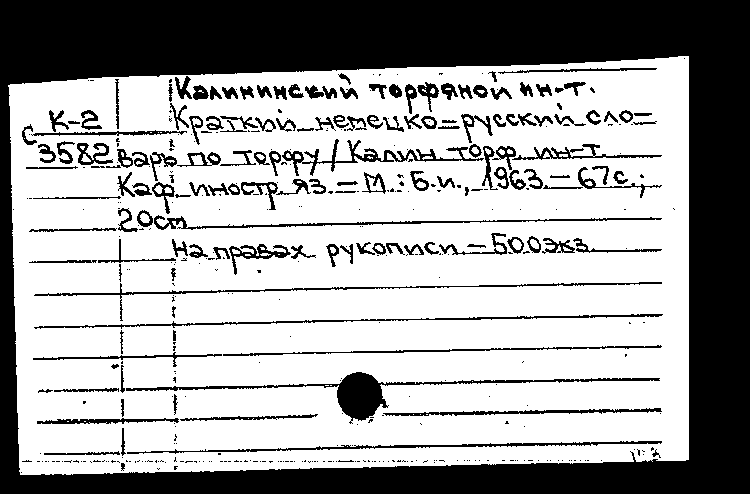 Калининский торфяной ин-т.
К-2 Краткий немецко-русский сло-
С 3582 варь по торфу / Калин. торф. ин-т.
Каф. иностр. яз. - М.: Б.и., 1963. - 67с.;
20см
На правах рукописи. - 500экз.